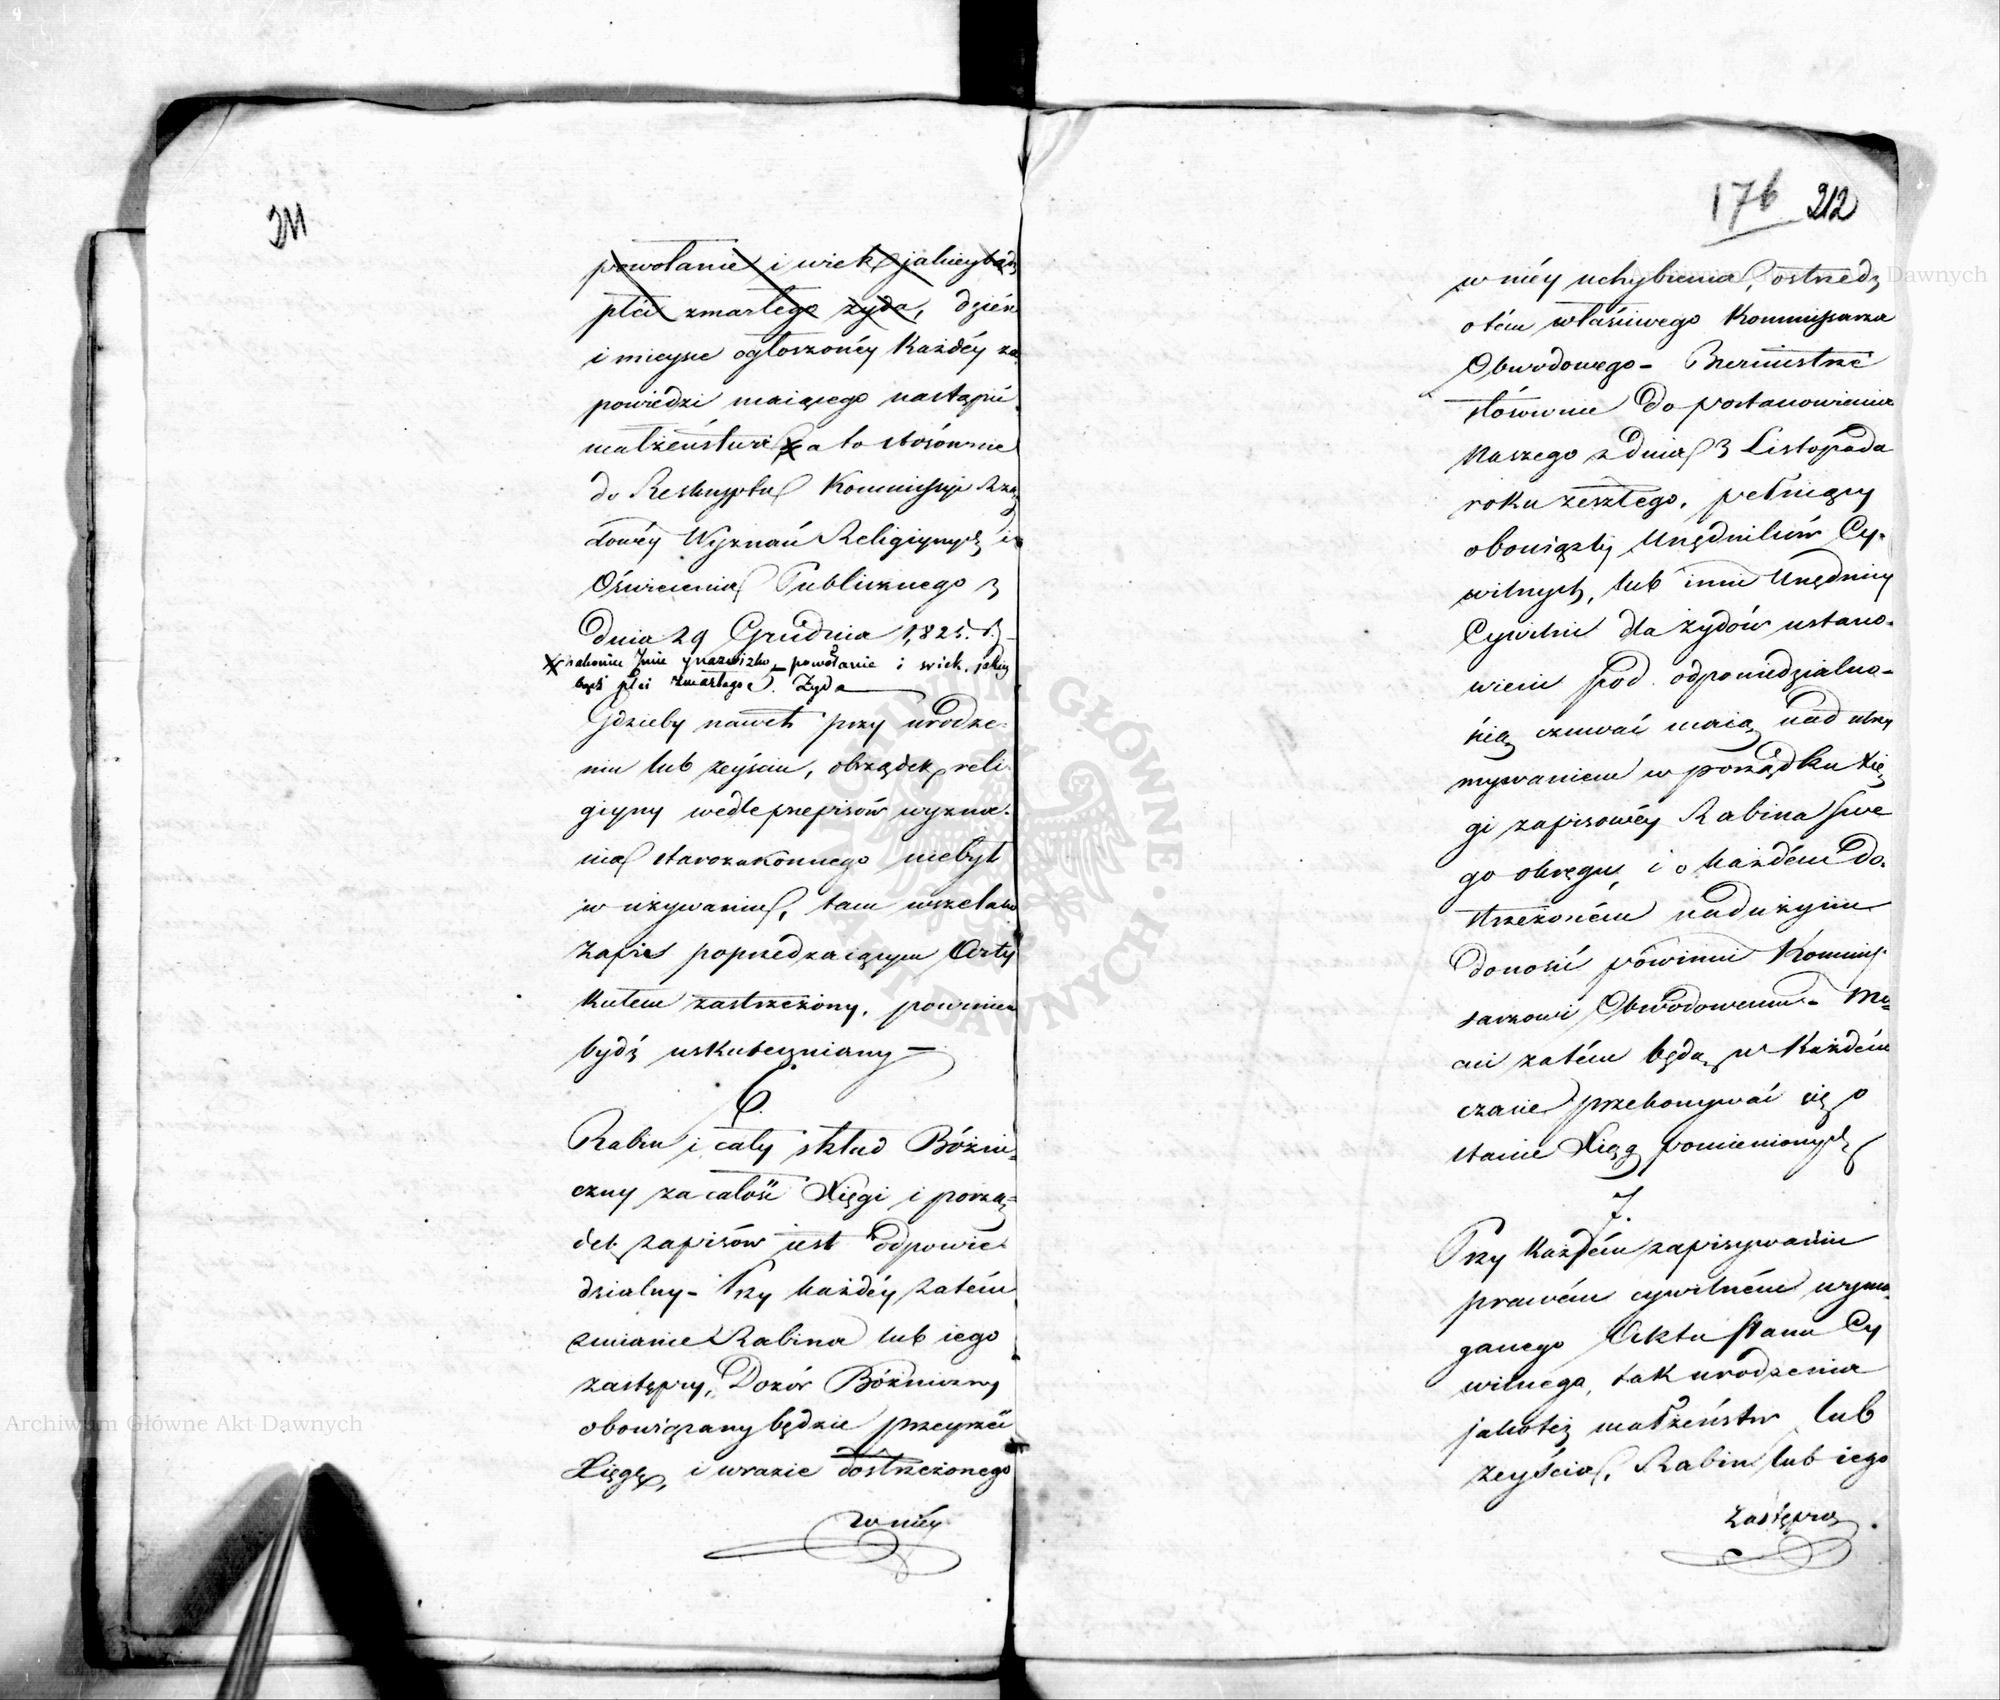 211
powołanie i wiek jakieybądź
płci zmarłego żyda, dzień
i mieysce ogłoszonéy każdéy za-
powiedzi maiącego nastąpić
małżeństwa x a to stósownie
do Reskryptu Kommissyi Rzą-
dowéy Wyznań Religiynych i
Oświecenia Publicznego z
dnia 29 Grudnia 1,825. r.
x nakoniec Imie y nazwisko powołanie i wiek jakiey
bądź płci zmarłego Żyda
Gdzieby nawet przy urodze-
niu lub zeyściu, obrządek reli-
giyny wedle przepisów wyzna-
nia starozakonnego niebył
w używaniu, tam wszelako
zapis poprzedzaiącym Arty
kułem zastrzeżony, powinien
bydź uskuteczniany —
6.
Rabin i cały skład Bóżni-
czny za całość Xięgi i porzą-
dek zapisów iest odpowie-
dzialny - Przy każdéy zatém
zmianie Rabina lub iego
zastępcy, Dozór Bóżniczny
obowiązany będzie przeyrzéć
Xięgę, i wrazie dostrzeżonego
w niéy
176 212
w niéy uchybienia, ostrzedz
otém właściwego Kommissarza
Obwodowego - Burmistrze
stósownie do postanowienia
Naszego z dnia 3 Listopada
roku zeszłego, pełniący
obowiązki Urzędników Cy-
wilnych, lub inni Urzędnicy
Cywilni dla żydów ustano-
wieni pod odpowiedzialno-
ścią czuwać maią nad utrzy
mywaniem w porządku Xię
gi zapisowéy Rabina swe
go okręgu, i o każdém do-
strzeżoném nadużyciu
donosić powinni Kommis-
sarzowi Obwodowemu - Mo-
cni zatém będą w każdém
czasie przekonywać się o
stanie Xiąg pomienionych
7.
Przy każdém zapisywaniu
prawém cywilném wyma-
ganego Aktu stanu Cy
wilnego, tak urodzenia
jakotéż małżeństw lub
zeyścia, Rabin lub iego
Zastępca
Archiwum Główne Akt Dawnych
Archiwum Główne Akt Dawnych
ARCHIWUM GŁÓWNE AKT DAWNYCH